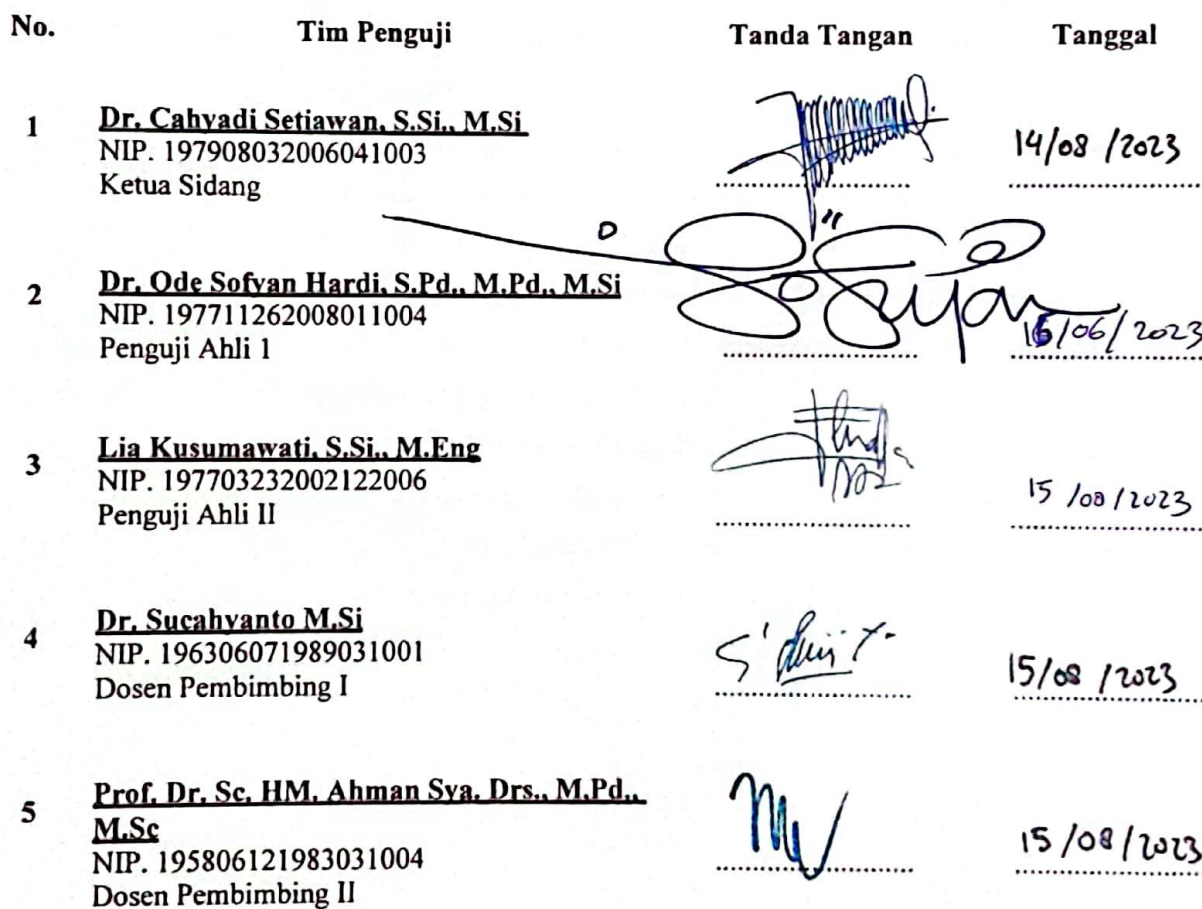 No. Tim Penguji Tanda Tangan Tanggal
1 Dr. Cahyadi Setiawan, S.Si., M.Si
NIP. 197908032006041003
Ketua Sidang
14/08/2023
2 Dr. Ode Sofyan Hardi, S.Pd., M.Pd., M.Si
NIP. 197711262008011004
Penguji Ahli 1
/06/2023
3 Lia Kusumawati, S.Si., M.Eng
NIP. 197703232002122006
Penguji Ahli II
15/08/2023
4 Dr. Sucahyanto M.Si
NIP. 196306071989031001
Dosen Pembimbing I
15/08/2023
5 Prof. Dr. Sc. HM. Ahman Sya. Drs., M.Pd.,
M.Sc
NIP. 195806121983031004
Dosen Pembimbing II
15/08/2023